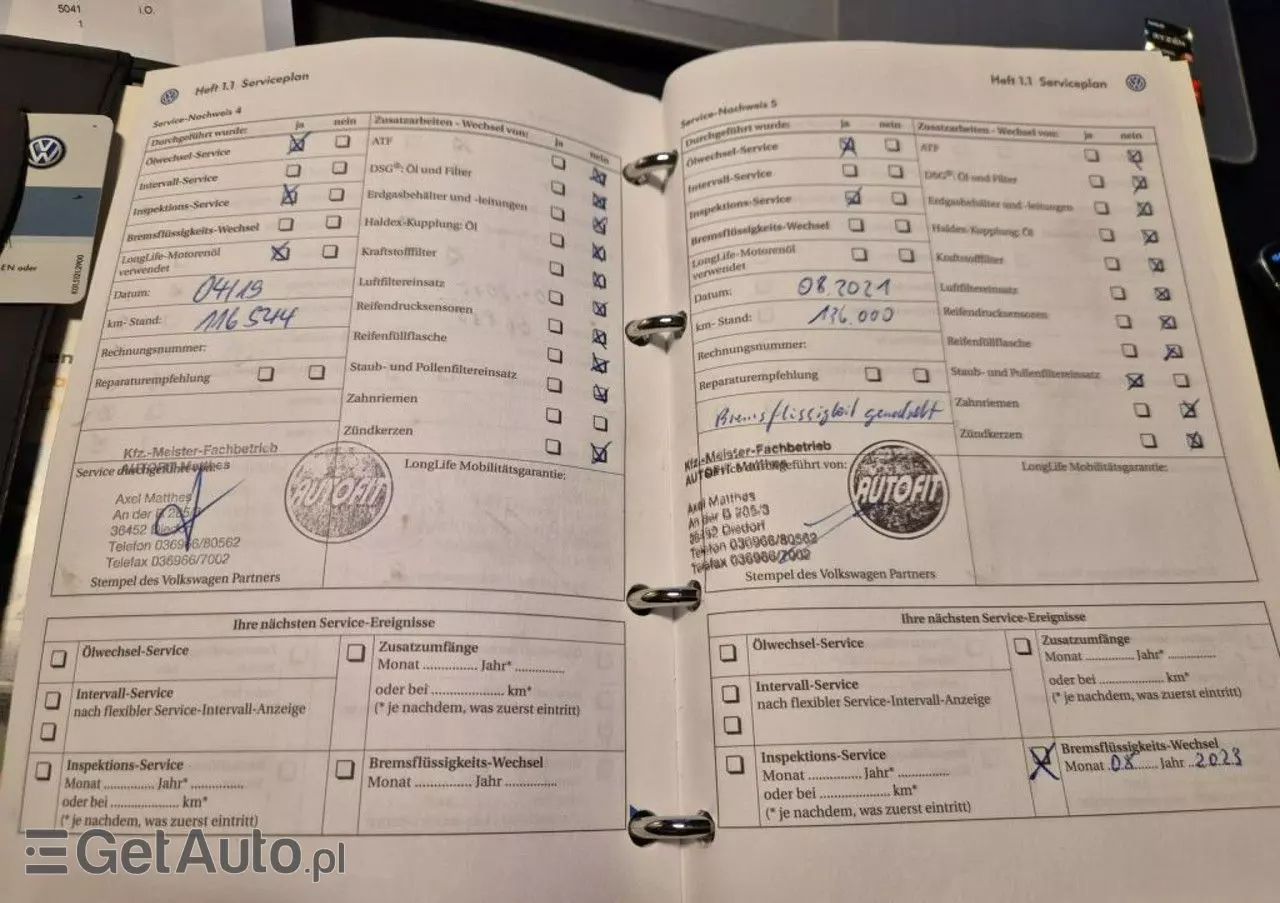 5041 i.O.
1
EN oder
Heft 1.1 Serviceplan
Service-Nachweis 4
Durchgeführt wurde: ja nein
Ölwechsel-Service
Intervall-Service
Inspektions-Service
Bremsflüssigkeits-Wechsel
LongLife-Motorenöl
verwendet
Datum: 04/19
km-Stand: 116 544
Rechnungsnummer:
Reparaturempfehlung
Zusatzarbeiten - Wechsel von: ja nein
ATF
DSG®: Öl und Filter
Erdgasbehälter und -leitungen
Haldex-Kupplung: Öl
Kraftstofffilter
Luftfiltereinsatz
Reifendrucksensoren
Reifenfüllflasche
Staub- und Pollenfiltereinsatz
Zahnriemen
Zündkerzen
Kfz.-Meister-Fachbetrieb
AUTOFIT Matthes
Axel Matthes
An der B 285/3
36452 Diedorf
Telefon 036966/80562
Telefax 036966/7002
AUTOFIT
Stempel des Volkswagen Partners
LongLife Mobilitätsgarantie:
Ihre nächsten Service-Ereignisse
Ölwechsel-Service
Intervall-Service
nach flexibler Service-Intervall-Anzeige
Inspektions-Service
Monat ............. Jahr* .............
oder bei ................. km*
(* je nachdem, was zuerst eintritt)
Zusatzumfänge
Monat ............. Jahr* .............
oder bei ................. km*
(* je nachdem, was zuerst eintritt)
Bremsflüssigkeits-Wechsel
Monat ............. Jahr .............
Heft 1.1 Serviceplan
Service-Nachweis 5
Durchgeführt wurde: ja nein
Ölwechsel-Service
Intervall-Service
Inspektions-Service
Bremsflüssigkeits-Wechsel
LongLife-Motorenöl
verwendet
Datum: 08.2021
km-Stand: 136.000
Rechnungsnummer:
Reparaturempfehlung
Bremsflüssigkeit gewechselt
Zusatzarbeiten - Wechsel von: ja nein
ATF
DSG®: Öl und Filter
Erdgasbehälter und -leitungen
Haldex-Kupplung: Öl
Kraftstofffilter
Luftfiltereinsatz
Reifendrucksensoren
Reifenfüllflasche
Staub- und Pollenfiltereinsatz
Zahnriemen
Zündkerzen
Kfz.-Meister-Fachbetrieb
AUTOFIT Matthes
Axel Matthes
An der B 285/3
36452 Diedorf
Telefon 036966/80562
Telefax 036966/7002
AUTOFIT
Stempel des Volkswagen Partners
LongLife Mobilitätsgarantie:
Ihre nächsten Service-Ereignisse
Ölwechsel-Service
Intervall-Service
nach flexibler Service-Intervall-Anzeige
Inspektions-Service
Monat ............. Jahr* .............
oder bei ................. km*
(* je nachdem, was zuerst eintritt)
Zusatzumfänge
Monat ............. Jahr* .............
oder bei ................. km*
(* je nachdem, was zuerst eintritt)
Bremsflüssigkeits-Wechsel
Monat .08....... Jahr ..2023
GetAuto.pl